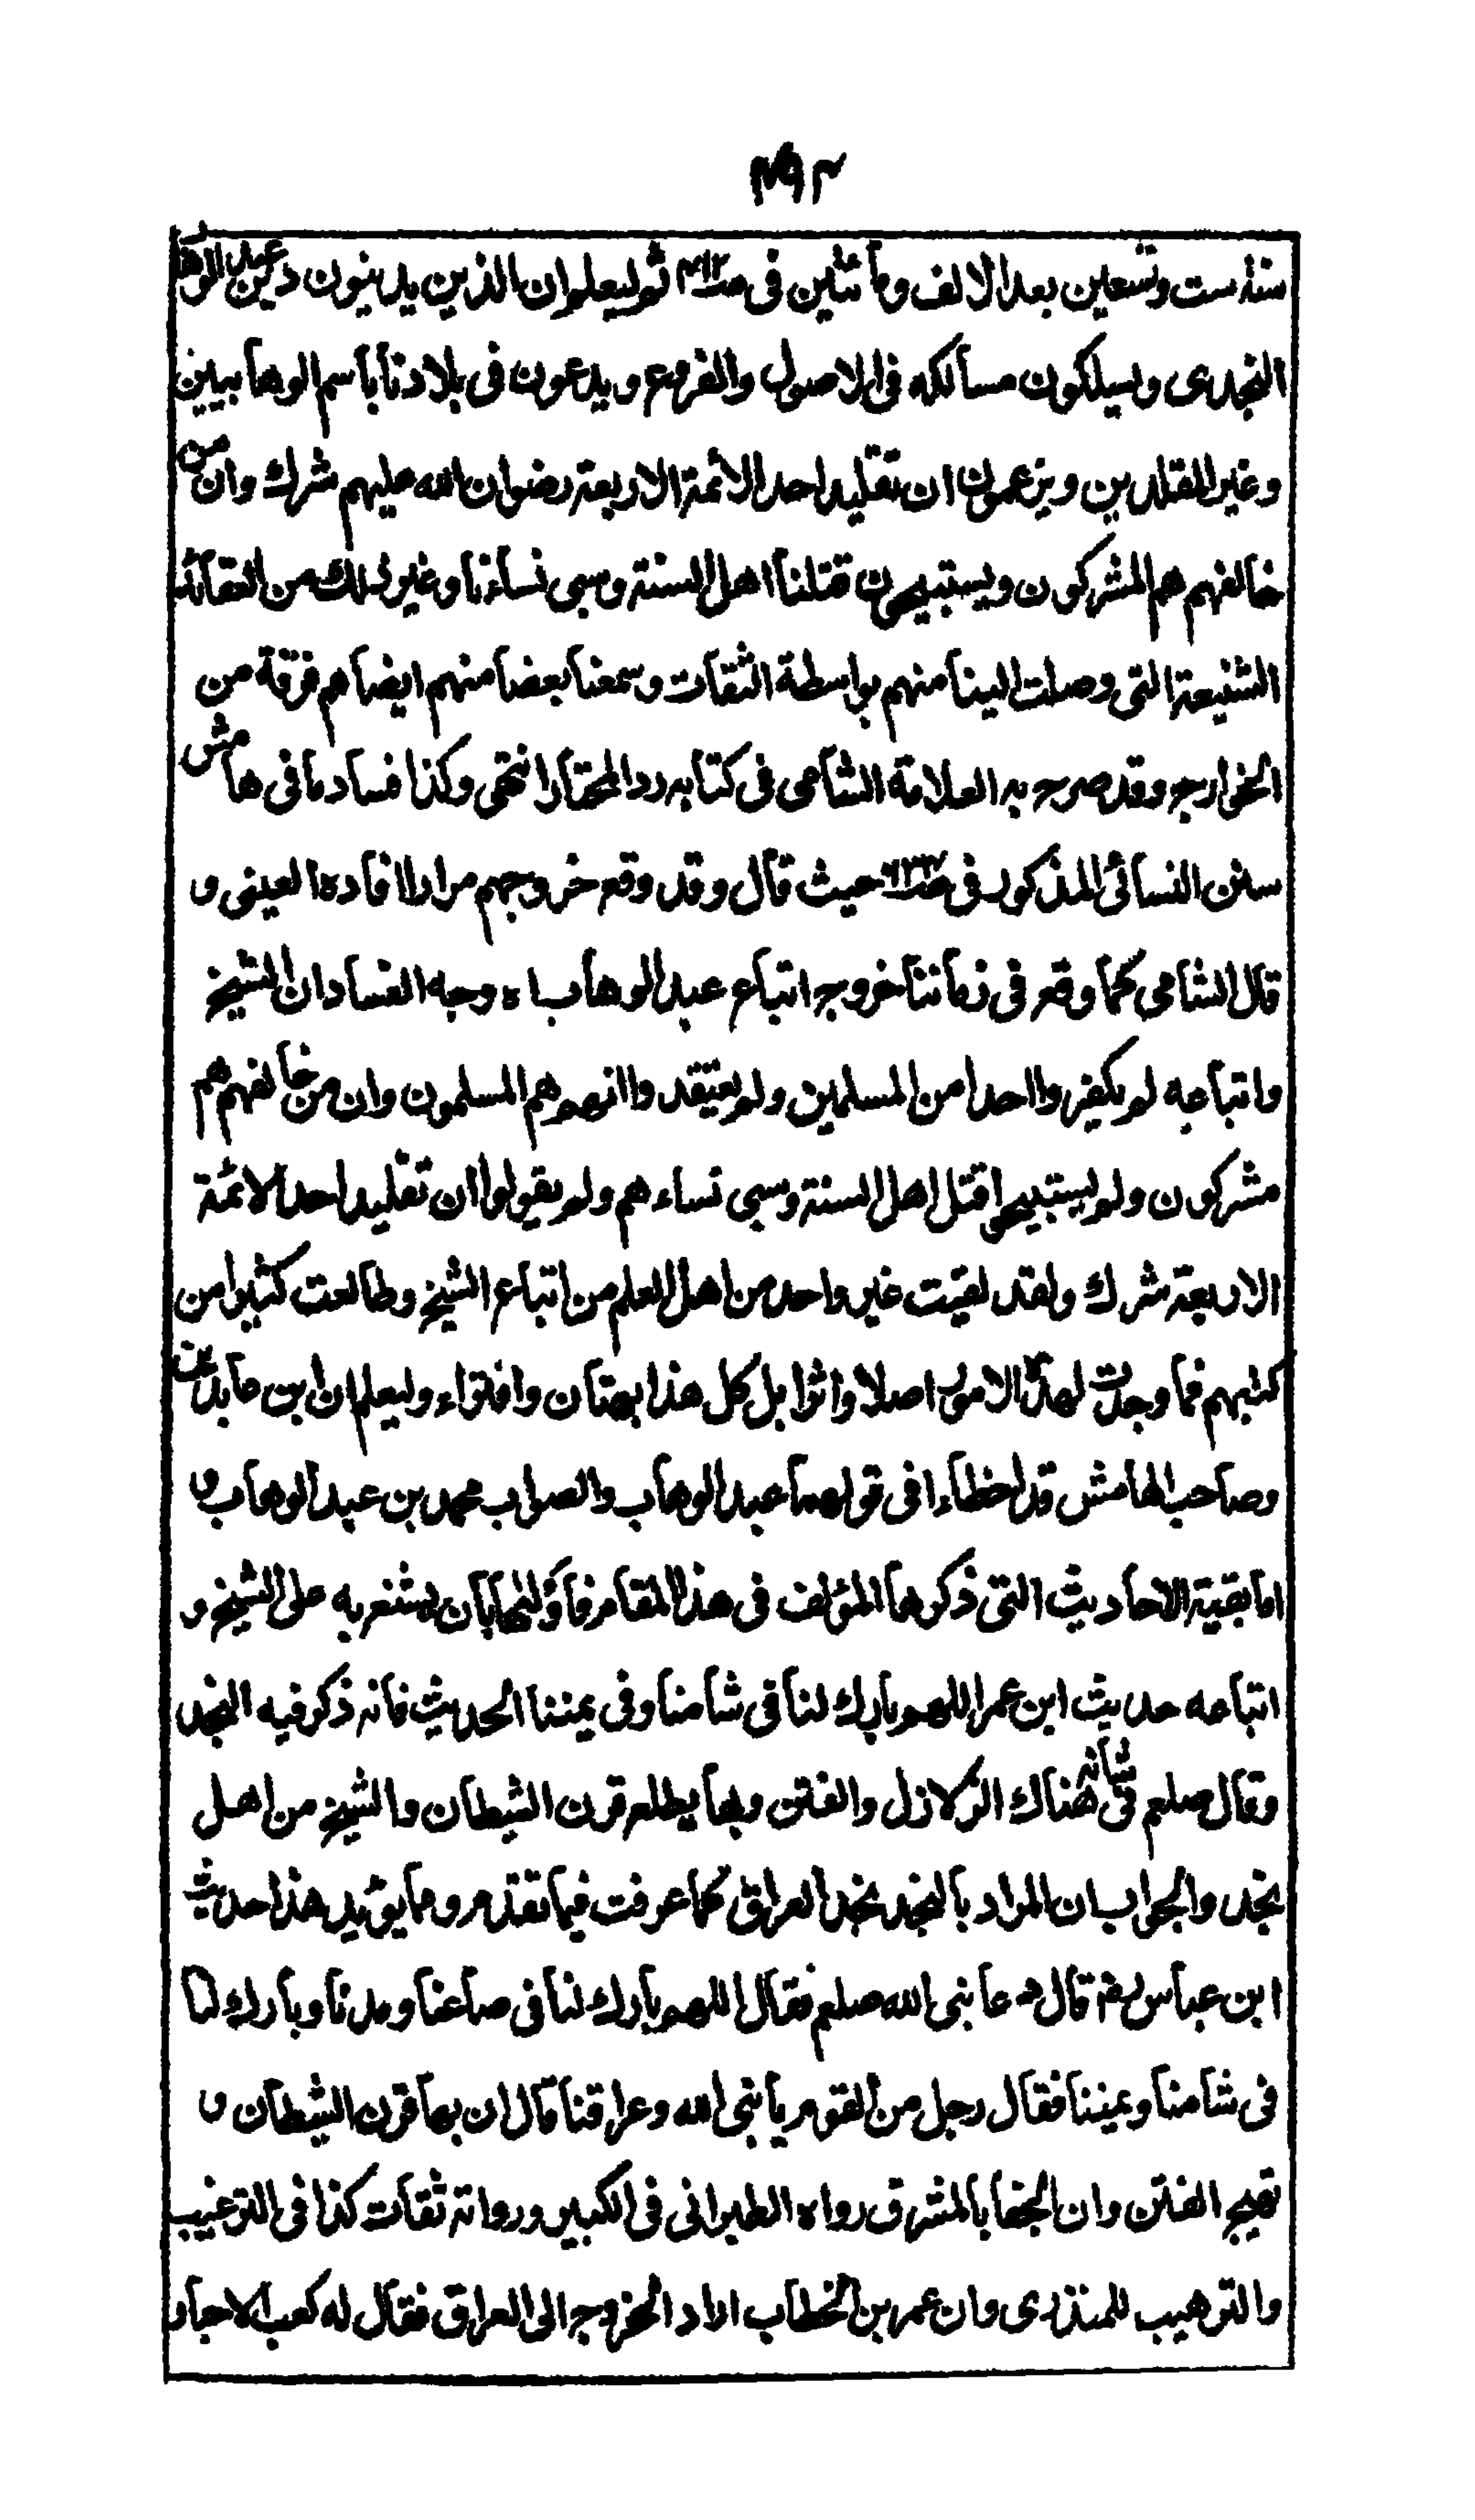 ٤٩٢
سنة ست وتسعين بعد الالف ومائتين في ثم ليعلم ان الذين يدينون دين عبد الوهاب
النجدى ويسلكون مسالكه فى الاصول والفروع ويدعون فى بلادنا باسم الوهابيين
وغير المقلدين ويزعمون ان تقليد احد الائمة الاربعة رضوان الله عليهم شرك وان من
خالفهم هم المشركون ويستبيحون قتلنا اهل السنة وسبى نساءنا وغير ذلك من العقائد
الشنيعة التى وصلت الينا منهم بواسطة الثقات وسمعنا بعضا منهم ايضا هم فرقة من
الخوارج وقد صرح به العلامة الشامى فى كتابه رد المحتار انتهى وكذا فساد ما فى هامش
سنن النسائى المذكور فى حيث قال وقد وقع خروجهم مرارا افاده العينى و
قال الشامى كما وقع فى زماننا خروج اتباع عبد الوهاب اه وجه الفساد ان الشيخ
واتباعه لم يكفروا احدا من المسلمين ولم يعتقدوا انهم هم المسلمون وان من خالفهم هم
مشركون ولم يستبيحوا قتل اهل السنة وسبى نساءهم ولم يقولوا ان تقليد احد الائمة
الاربعة شرك ولقد لقيت غير واحد من اهل العلم من اتباع الشيخ وطالعت كثيرا من
كتبهم فما وجدت لهذه الامور اصلا واثرا بل كل هذا بهتان وافتراء وليعلم ان ابن عابدين
وصاحب الهامش قد اخطاءا فى قولهما عبد الوهاب والصواب محمد بن عبد الوهاب و
اما بقية الاحاديث التى ذكرها المؤلف فى هذا المقام فأولها بان يشغر به على الشيخ و
اتباعه حديث ابن عمر اللهم بارك لنا فى شامنا وفى يمننا الحديث فانه ذكر فيه النجد
وقال صلعم فى شانه هناك الزلازل والفتن وبها يطلع قرن الشيطان والشيخ من اهل
نجد والجواب ان المراد بالنجد نجد العراق كما عرفت فيما تقدم ومما يؤيد هذا حديث
ابن عباس رضه قال دعا نبى الله صلعم فقال اللهم بارك لنا فى صاعنا ومدنا وبارك لنا
فى شامنا ويمننا فقال رجل من القوم يا نبى الله وعراقنا قال ان بها قرن الشيطان و
تهيج الفتن وان الجفا بالمشرق رواه الطبرانى فى الكبير ورواته ثقات كذا فى الترغيب
والترهيب للمنذرى وان عمر بن الخطاب اراد الخروج الى العراق فقال له كعب الاحبار